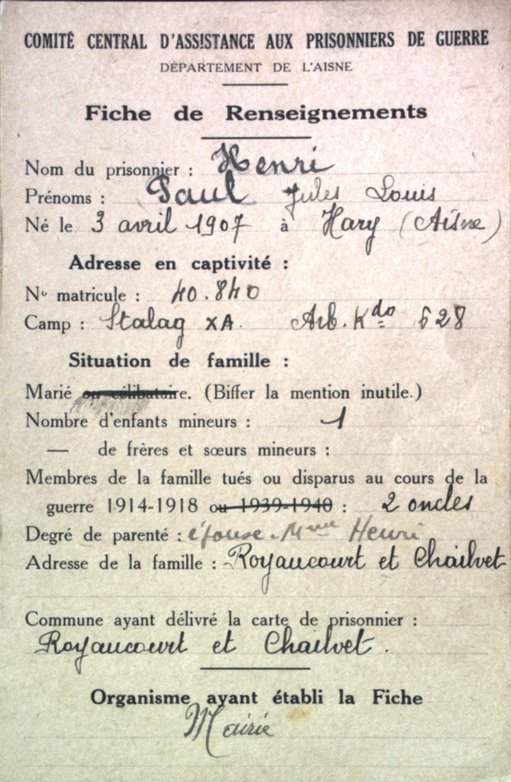 COMITÉ CENTRAL D'ASSISTANCE AUX PRISONNIERS DE GUERRE
DÉPARTEMENT DE L'AISNE
Fiche de Renseignements
Nom du prisonnier : Henri
Prénoms : Paul Jules Louis
Né le 3 avril 1907 à Hary (Aisne)
Adresse en captivité :
No matricule : 40.840
Camp : Stalag XA. Arb. Kdo 628
Situation de famille :
Marié ou célibataire. (Biffer la mention inutile.)
Nombre d'enfants mineurs : 1
— de frères et sœurs mineurs :
Membres de la famille tués ou disparus au cours de la
guerre 1914-1918 ou 1939-1940 : 2 oncles
Degré de parenté : épouse. Mme Henri
Adresse de la famille : Royaucourt et Chailvet
Commune ayant délivré la carte de prisonnier :
Royaucourt et Chailvet.
Organisme ayant établi la Fiche
Mairie